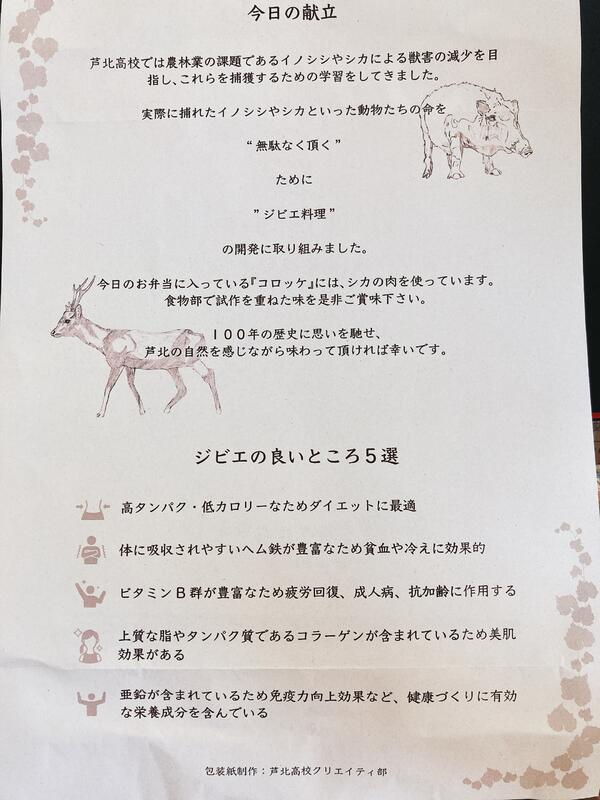 今日の献立
芦北高校では農林業の課題であるイノシシやシカによる獣害の減少を目
指し、これらを捕獲するための学習をしてきました。
実際に捕れたイノシシやシカといった動物たちの命を
“無駄なく頂く”
ために
”ジビエ料理”
の開発に取り組みました。
今日のお弁当に入っている『コロッケ』には、シカの肉を使っています。
食物部で試作を重ねた味を是非ご賞味下さい。
100年の歴史に思いを馳せ、
芦北の自然を感じながら味わって頂ければ幸いです。
ジビエの良いところ5選
高タンパク・低カロリーなためダイエットに最適
体に吸収されやすいヘム鉄が豊富なため貧血や冷えに効果的
ビタミンB群が豊富なため疲労回復、成人病、抗加齢に作用する
上質な脂やタンパク質であるコラーゲンが含まれているため美肌
効果がある
亜鉛が含まれているため免疫力向上効果など、健康づくりに有効
な栄養成分を含んでいる
包装紙制作：芦北高校クリエイティ部